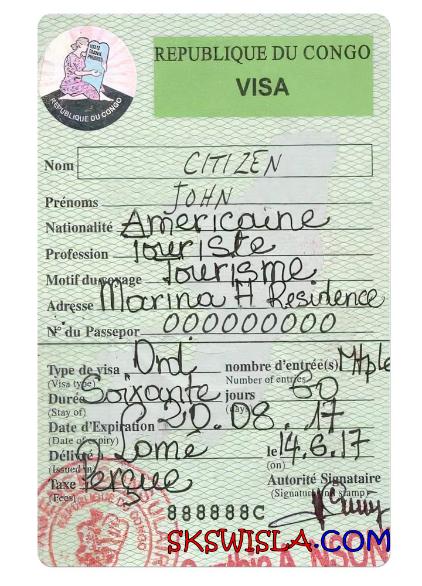 REPUBLIQUE DU CONGO
VISA
REPUBLIQUE DU CONGO
Nom CITIZEN
Prénoms JOHN
Nationalité Americaine
Profession Touriste
Motif du voyage Tourisme
Adresse Marina H Residence
N° du Passepor 000000000
Type de visa Ord nombre d'entrée(s) Mtple
(Visa type) Number of entries
Durée Soixante jours 60
(Stay of) (days)
Date d'Expiration 20.08.17
(Date of expiry)
Délivré à Lomé le 14.6.17
(Issued in) (on)
Taxe Perçue Autorité Signataire
(Fees) (Signature and stamp)
888888C
SKSWISLA.COM